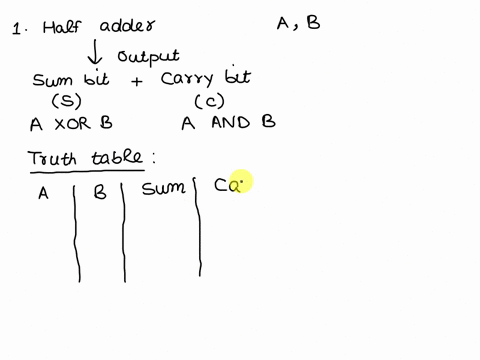 1. Half adder A, B
Output
Sum bit + Carry bit
(S) (C)
A XOR B A AND B
Truth table :
A B Sum Ca